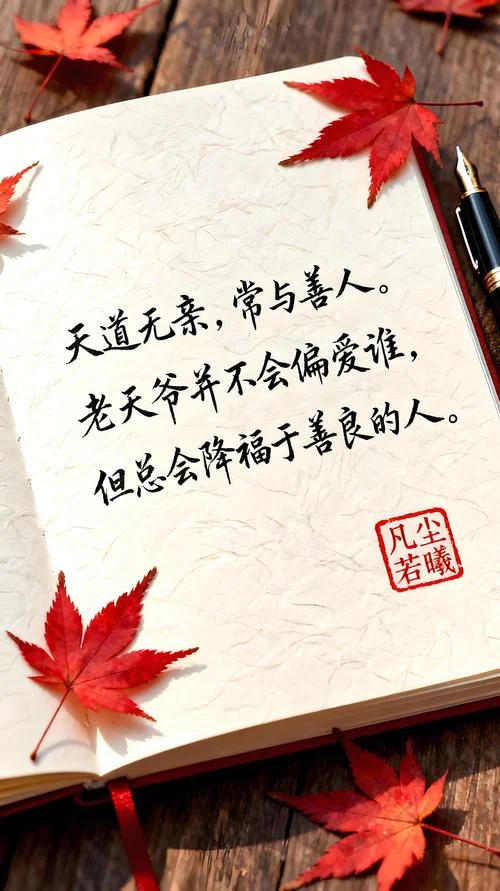 天道无亲，常与善人。
老天爷并不会偏爱谁，
但总会降福于善良的人。
凡尘
若曦